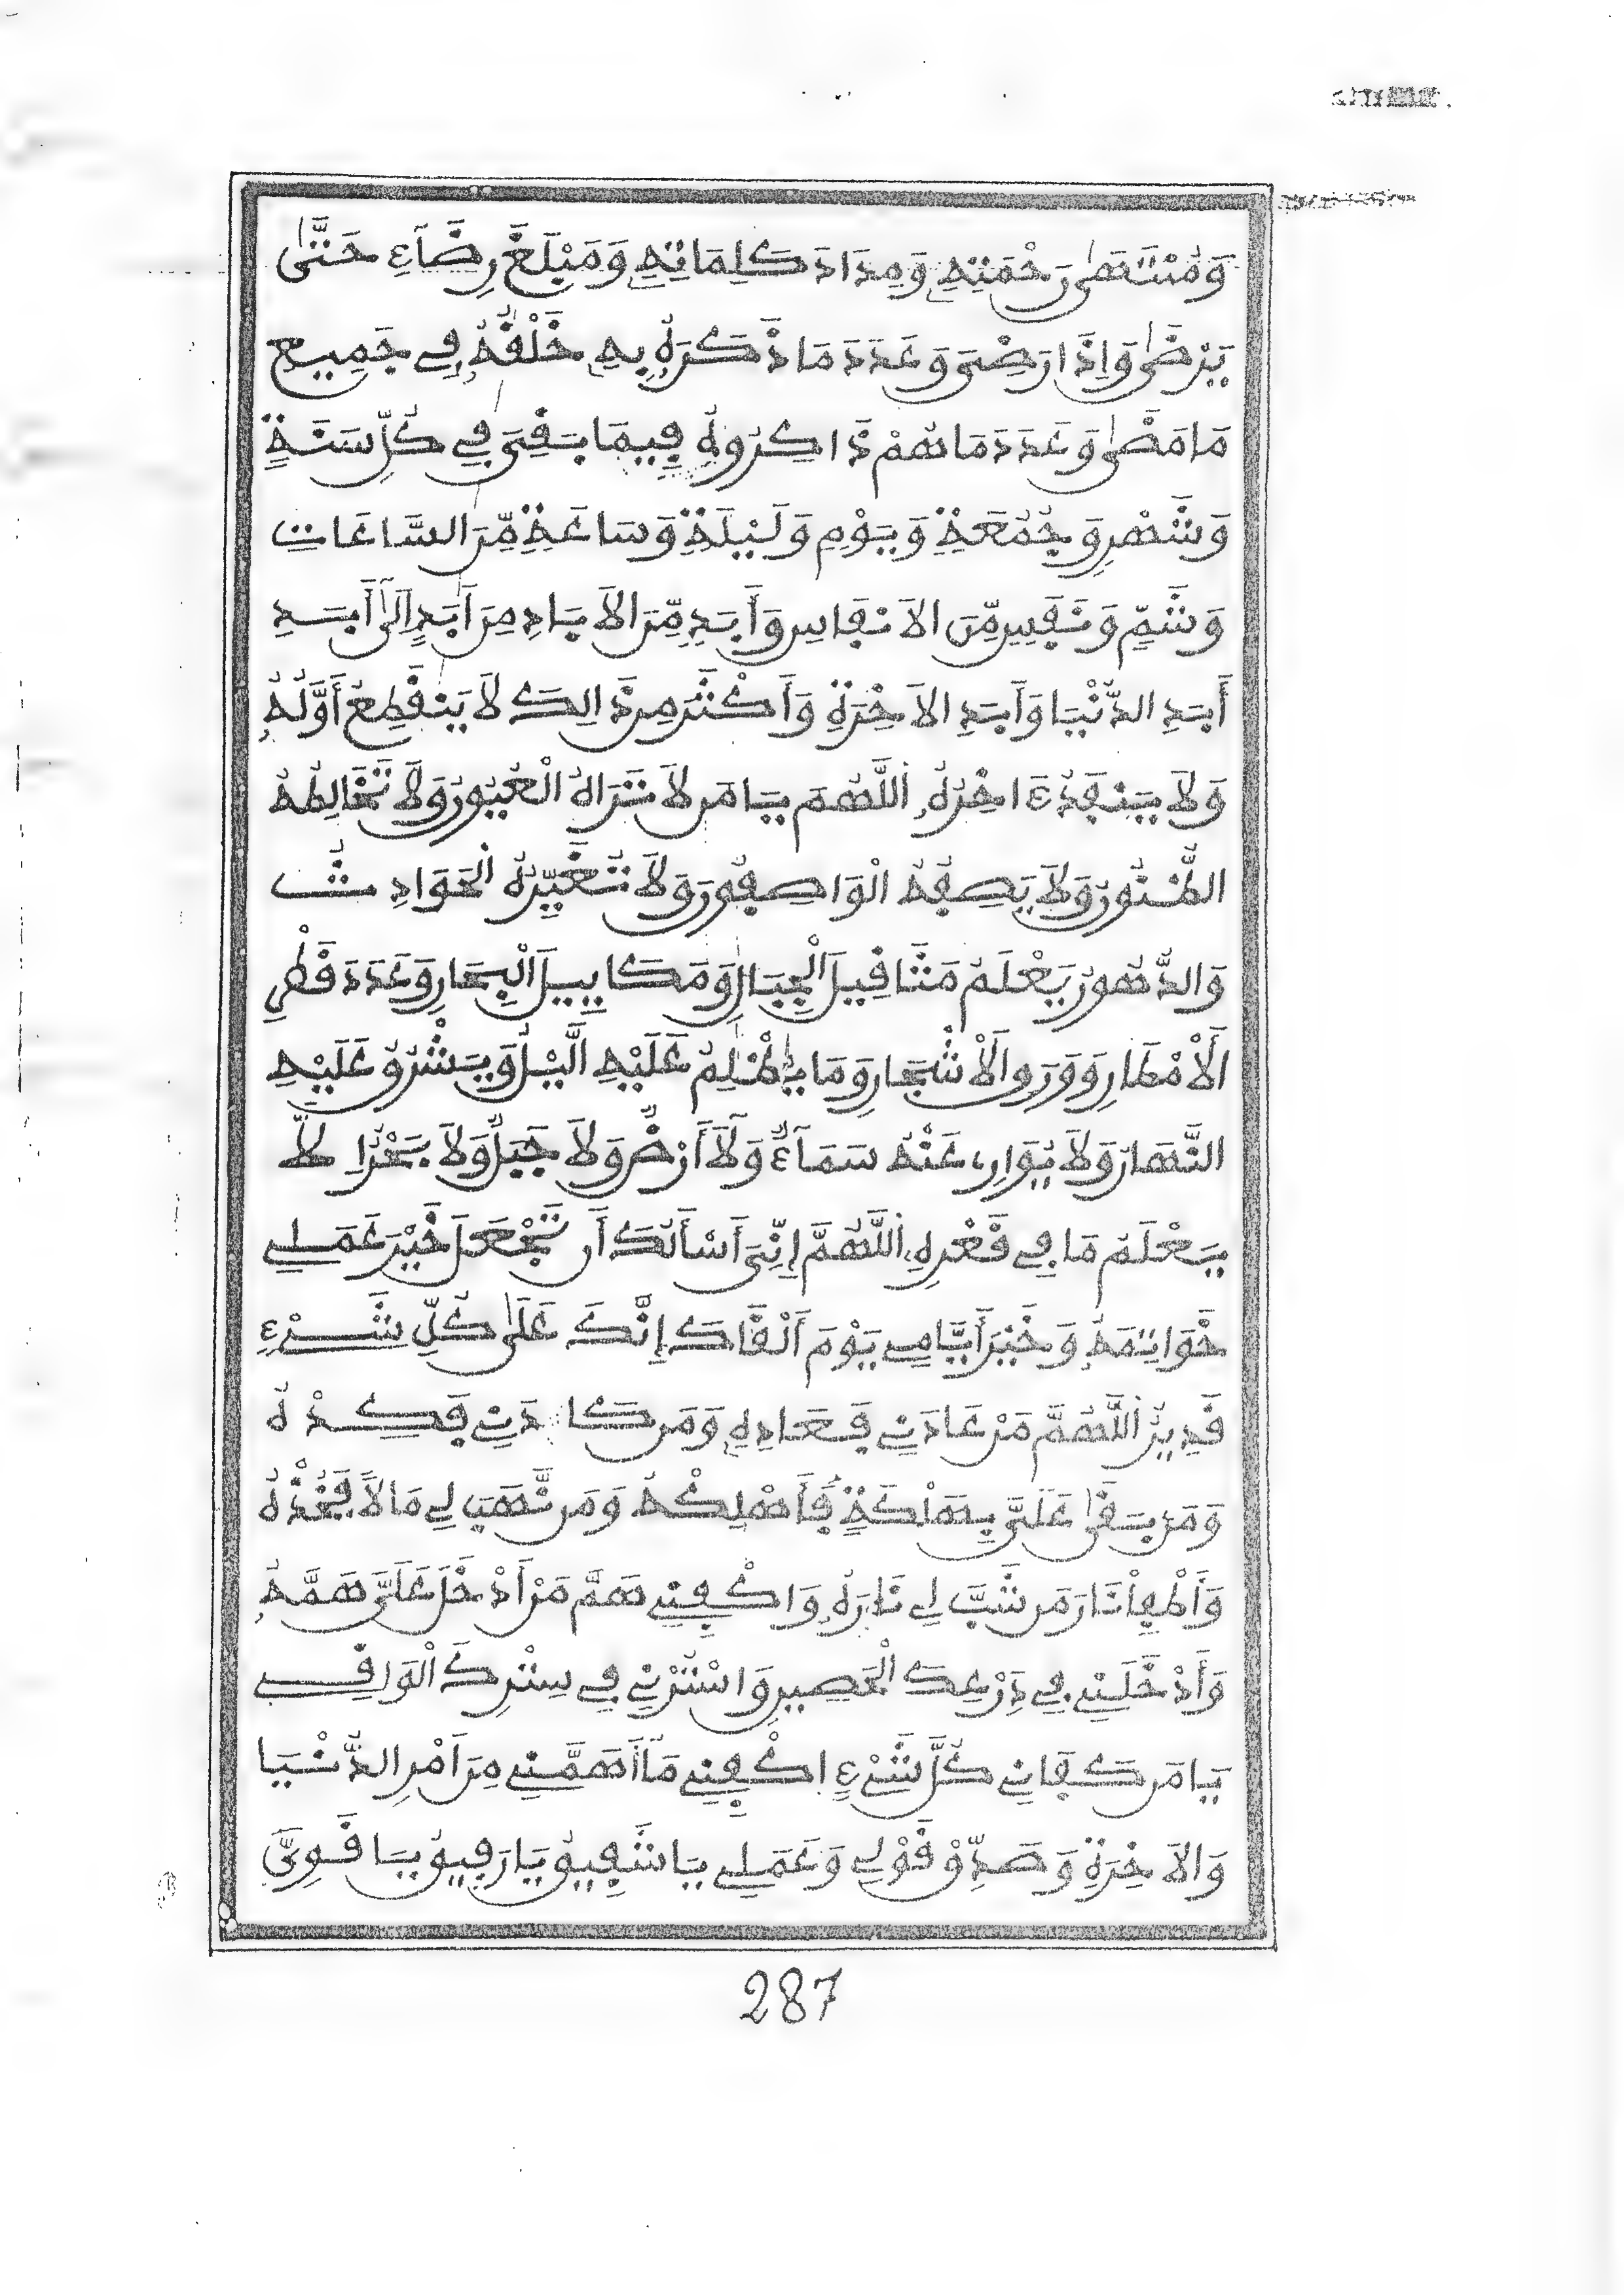 وَمُنْتَهَىٰ رَحْمَتِهِ وَمِدَادَ كَلِمَاتِهِ وَمَبْلَغَ رِضَآءِ حَتَّىٰ
يَرْضَىٰ وَإِذَا رَضِىَ وَعَدَدَ مَا ذَكَرَهُ بِهِ خَلْقُهُ فِے جَمِيعِ
مَا مَضَىٰ وَعَدَدَ مَا هُمْ ذَاكِرُوهُ فِيمَا بَقِىَ فِے كُلِّ سَنَةٍ
وَشَهْرٍ وَجُمُعَةٍ وَيَوْمٍ وَلَيْلَةٍ وَسَاعَةٍ مِّنَ السَّاعَاتِ
وَشَمٍّ وَنَفَسٍ مِّنَ الاَنْفَاسِ وَأَبَدٍ مِّنَ الاَبَادِ مِنَ اَبَدٍ اِلَىٰٓ أَبَدٍ
أَبَدِ الدُّنْيَا وَأَبَدِ الاَخِرَةِ وَأَكْثَرَ مِن ذَالِكَ لاَ يَنقَطِعُ أَوَّلُهُ
وَلاَ يَنْفَدُ ءَاخِرُهُ اَللَّهُمَّ يَا مَن لاَ تَرَاهُ الْعُيُونُ وَلاَ تُخَالِطُهُ
الظُّنُونُ وَلاَ يَصِفُهُ الْوَاصِفُونَ وَلاَ تُغَيِّرُهُ الْحَوَادِثُ
وَالدُّهُورُ يَعْلَمُ مَثَاقِيلَ الْجِبَالِ وَمَكَايِيلَ الْبِحَارِ وَعَدَدَ قَطْرِ
اَلاْمْطَارِ وَوَرَقِ اَلاْشْجَارِ وَمَا يُظْلِمُ عَلَيْهِ الَّيْلُ وَيَشْرُقُ عَلَيْهِ
النَّهَارُ وَلاَ يُوَارِے عَنْهُ سَمَآءٌ وَلآَ أَرْضٌ وَلاَ جَبَلٌ وَلاَ بَحْرٌ اِلاَّ
يَعْلَمُ مَا فِے قَعْرِهِ اَللَّهُمَّ إِنِّىَ أَسْأَلُكَ أَن تَجْعَلَ خَيْرَ عَمَلِے
خَوَاتِمَهُ وَخَيْرَ أَيَّامِے يَوْمَ أَلْقَاكَ إِنَّكَ عَلَىٰ كُلِّ شَےْءٍ
قَدِيرٌ اَللَّهُمَّ مَنْ عَادَانِے فَعَادِهِ وَمَن كَادَنِے فَكِدْهُ
وَمَن بَغَىٰ عَلَىَّ بِهَلْكَةٍ فَأَهْلِكْهُ وَمَن نَّصَبَ لِے مَالاً فَخُذْهُ
وَأَطْفِأْ نَارَ مَن شَبَّ لِے نَارَهُ وَاكْفِنِے هَمَّ مَنْ أَدْخَلَ عَلَىَّ هَمَّهُ
وَأَدْخِلْنِے فِے دِرْعِكَ الْحَصِينِ وَاسْتُرْنِے فِے سِتْرِكَ الْوَاقِے
يَا مَن كَفَانِے كُلَّ شَےْءٍ اكْفِنِے مَآ أَهَمَّنِے مِنَ اَمْرِ الدُّنْيَا
وَالاَخِرَةِ وَصَدِّقْ قَوْلِے وَعَمَلِے يَا شَفِيقُ يَا رَفِيقُ يَا قَوِىُّ
287